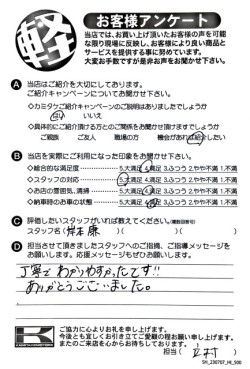 軽
お客様アンケート
当店では、お買い上げ頂いたお客様の声を可能
な限り現場に反映し、お客様により良い商品と
サービスを提供する事に努めています。
大変お手数ですが是非お声をお聞かせ下さい。
A 当店はご紹介を大切にしております。
ご紹介キャンペーンについてお聞かせ下さい。
◇カミタケご紹介キャンペーンのご説明はありましたでしょうか
はい いいえ
◇具体的にご紹介頂ける方とのご関係をお聞かせ頂けますでしょうか
ご親族 ご友人 職場の方 機会があれば紹介したい
B 当店を実際にご利用になった印象をお聞かせ下さい。
◇総合的な満足度 5.大満足 4.満足 3.ふつう 2.やや不満 1.不満
◇スタッフの対応 5.大満足 4.満足 3.ふつう 2.やや不満 1.不満
◇お店の雰囲気、清掃 5.大満足 4.満足 3.ふつう 2.やや不満 1.不満
◇納車時のお車の状態 5.大満足 4.満足 3.ふつう 2.やや不満 1.不満
C 評価したいスタッフがいれば教えてください。(複数回答可)
スタッフ名(岸本 康)( )( )
D 担当させて頂きましたスタッフへのご指摘、ご指導メッセージを
お願いします。応援メッセージもぜひお願いします。
丁寧で わかりやすかったです!!
ありがとうございました。
ご協力に心よりお礼を申し上げます。
今後とも宜しくお引き立てご愛顧の程お願い申し上げます。
またのご来店を心からお待ちしております。
担当( 立村 )
SH_230707_HI_500